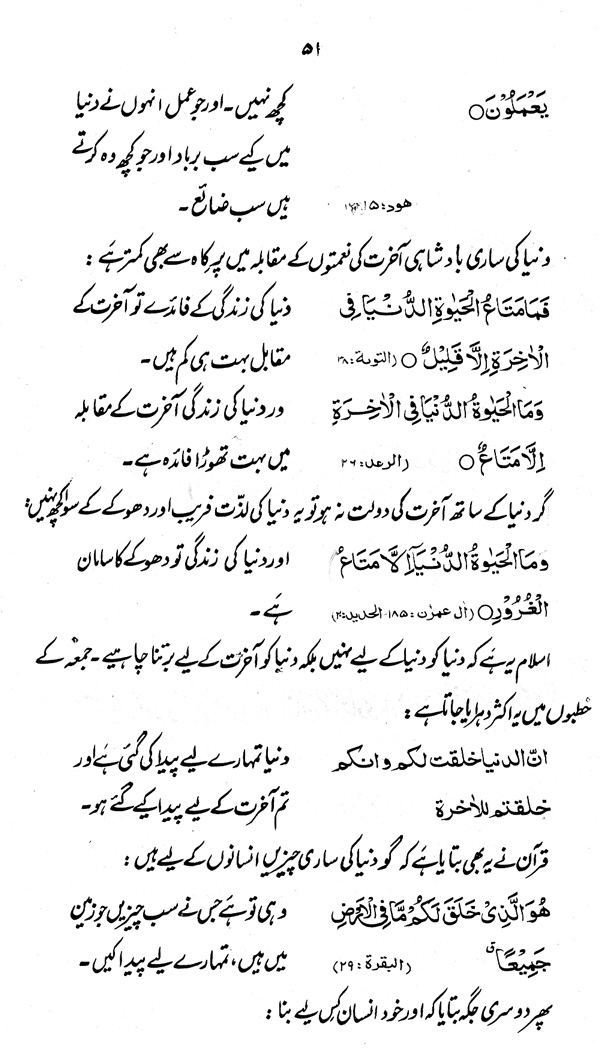 ۵۱
یَعْمَلُوْنَ○ کچھ نہیں۔ اور جو عمل انہوں نے دنیا
میں کیے سب برباد اور جو کچھ وہ کرتے
ھود: ۱۵، ہیں سب ضائع۔
دنیا کی ساری بادشاہی آخرت کی نعمتوں کے مقابلہ میں پرِ کاہ سے بھی کمتر ہے:
فَمَا مَتَاعُ الْحَیٰوۃِ الدُّنْیَا فِی دنیا کی زندگی کے فائدے تو آخرت کے
الْاٰخِرَۃِ اِلَّا قَلِیْلٌ○ (التوبۃ: ۳۸ مقابل بہت ہی کم ہیں۔
وَمَا الْحَیٰوۃُ الدُّنْیَا فِی الْاٰخِرَۃِ ور دنیا کی زندگی آخرت کے مقابلہ
اِلَّا مَتَاعٌ○ (الرعد: ۲۶ میں بہت تھوڑا فائدہ ہے۔
گر دنیا کے ساتھ آخرت کی دولت نہ ہو تو یہ دنیا کی لذّت فریب اور دھوکے کے سوا کچھ نہیں:
وَمَا الْحَیٰوۃُ الدُّنْیَآ اِلَّا مَتَاعُ اور دنیا کی زندگی تو دھوکے کا سامان
الْغُرُوْرِ○ (اٰل عمرٰن: ۱۸۵- الحدید: ۲۰) ہے۔
اسلام یہ ہے کہ دنیا کو دنیا کے لیے نہیں بلکہ دنیا کو آخرت کے لیے برتنا چاہیے۔ جمعہ کے
خطبوں میں یہ اکثر دہرایا جاتا ہے:
انّ الدنیا خلقت لکم و انکم دنیا تمہارے لیے پیدا کی گئی ہے اور
خلقتم للاٰخرۃ تم آخرت کے لیے پیدا کیے گئے ہو۔
قرآن نے یہ بھی بتایا ہے کہ گو دنیا کی ساری چیزیں انسانوں کے لیے ہیں:
ھُوَ الَّذِیْ خَلَقَ لَکُمْ مَّا فِی الْاَرْضِ وہی تو ہے جس نے سب چیزیں جو زمین
جَمِیْعًا ق (البقرۃ: ۲۹) میں ہیں، تمہارے لیے پیدا کیں۔
پھر دوسری جگہ بتایا کہ اور خود انسان کس لیے بنا: